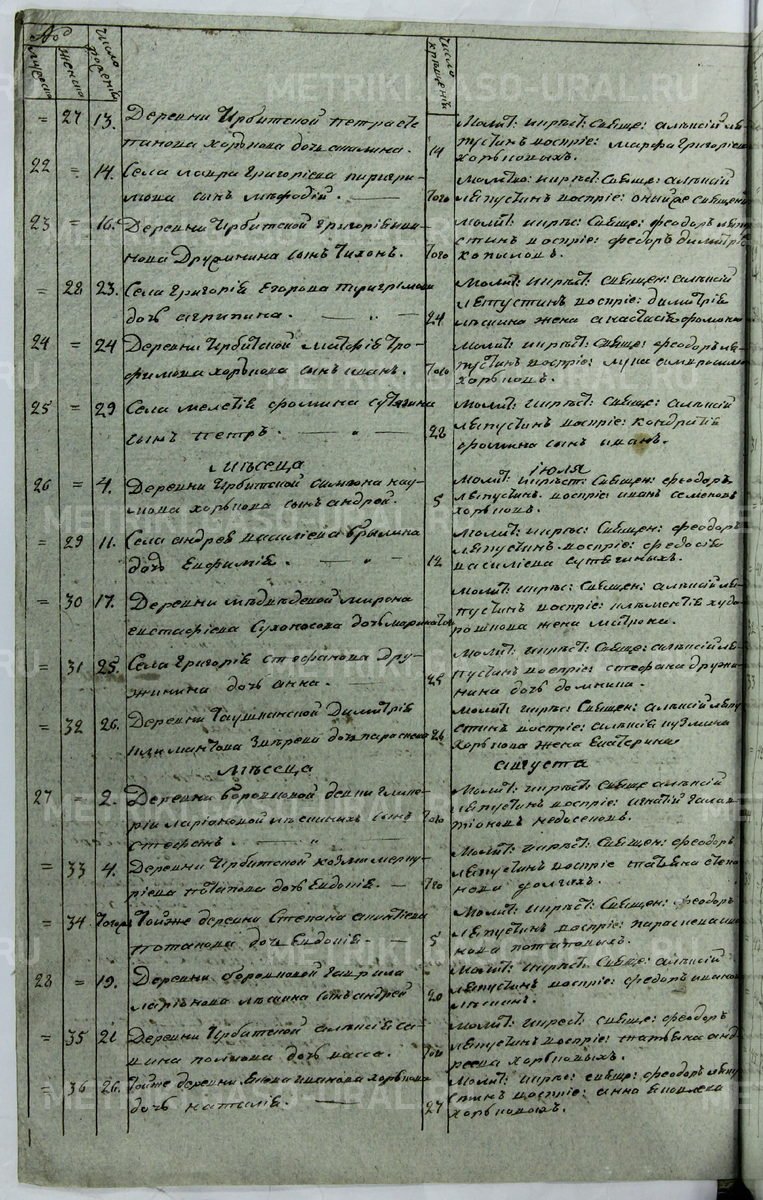 №
мужеска
женска
число рожденій
число крещеній
= 27 13. Деревни Ирбитской Петра Сте
панова Хорькова дочь
14
Молит: и крест: Свяще: Алексій Ле
пустинъ воспріе: Марфа Григоріева
Хорьковыхъ.
22 = 14. Села Лавра Григоріева Пиригри
мова сынъ Мефодій.
того
Молит: и крест: Свяще: Алексій
Лепустинъ воспріе: онъ же священ
23 = 16. Деревни Ирбитской Григорія Ива
нова Дружинина сынъ Тихонъ.
того
Молит: и крес: Свяще: Феодоръ Лепу
стинъ воспріе: Федоръ Димитріе
Копыловъ.
= 28 23. Села Григорія Егорова Пиригримова
дочь Агрипина.
24
Молит: и крест: Священ: Алексій
Лепустинъ воспріе: Димитрія
жена Анастасія
24 = 24 Деревни Ирбитской Матфія Тро
фимова Хорькова сынъ Иванъ.
того
Молит: и крест: Свяще: Феодоръ Ле
пустинъ воспріе: Лука
Хорьковъ.
25 = 29 Села Мелетія Фомина Сутягина
сынъ Петръ.
29
Молит: и крест: Свяще: Алексій
Лепустинъ воспріе: Кондратій
Фомина сынъ Иванъ.
Месеца Іюля
26 = 4. Деревни Ирбитской Симеона Нау
мова Хорькова сынъ Андрей.
5
Молит: и крест: Священ: Феодоръ
Лепустинъ. воспріе: Иванъ Семеновъ
Хорьковъ.
= 29 11. Села Андрея Василіева Брылина
дочь Евфимія.
12
Молит: и крес: Священ: Феодоръ
Лепустинъ воспріе: Федосія
Василіева Сутягиныхъ.
= 30 17. Деревни Медведевой Мирона
Евстафіева Сухоносова дочь Марина
того
Молит: и крес: Священ: Алексій Ле
пустинъ воспріе: Клементія Худо
рошкова жена Матрона.
= 31 25. Села Григорія Стефанова Дру
жинина дочь Анна.
25
Молит: и крест: Свяще: Алексій Ле
пустинъ воспріе: Стефана Дружи
нина дочь Домника.
= 32 26. Деревни Таушканской Димитрія
Зверева дочь Параскева
26
Молит: и крес: Священ: Алексій Лепу
стинъ воспріе: Алексія Кузмина
Хорькова жена Екатерина
Месеца Августа
27 = 2. Деревни Боровковой
Ларіоновой сынъ
Стефанъ.
того
Молит: и крест: Свяще Алексій
Лепустинъ воспріе: Игнатій Галак
тіоновъ Недосековъ.
= 33 4. Деревни Ирбитской Козмы Мерку
ріева Потапова дочь Евдокія.
того
Молит: и крест: Священ: Феодоръ
Лепустинъ воспріе Татьяна Степа
нова
= 34 Тогожъ Тойже деревни Степана
Потапова дочь Евдокія.
5
Молит: и крест: Священ: Феодоръ
Лепустинъ воспріе: Параскева Ива
нова Потаповыхъ.
28 = 19. Деревни Боровковой Гаврила
Ларіонова Лесина сынъ Андрей
20
Молит: и крест: Свяще: Алексій
Лепустинъ воспріе: Федоръ Иванов
Лесинъ.
= 35 21 Деревни Ирбитской Алексія Са
вина Попкова дочь Васса.
того
Молит: и крест: Свяще: Феодоръ
Лепустинъ воспріе: Татьяна Анд
реева Хорьковыхъ.
= 36 26. Тойже деревни Екима Иванова Хорькова
дочь Наталія.
27
Молит: и крес: Свяще: Феодоръ Лепу
стинъ воспріе: Анна Екимова
Хорьковыхъ.
METRIKI.BASH-URAL.RU